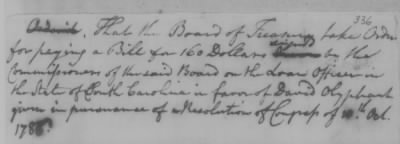 336
Ordered, That the Board of Treasury take Order
for paying a Bill for 160 Dollars by the
Commissioners of the said Board on the Loan Officer in
the State of South Carolina in favor of David Olyphant
given in pursuance of a Resolution of Congress of 10th Oct.
1786.